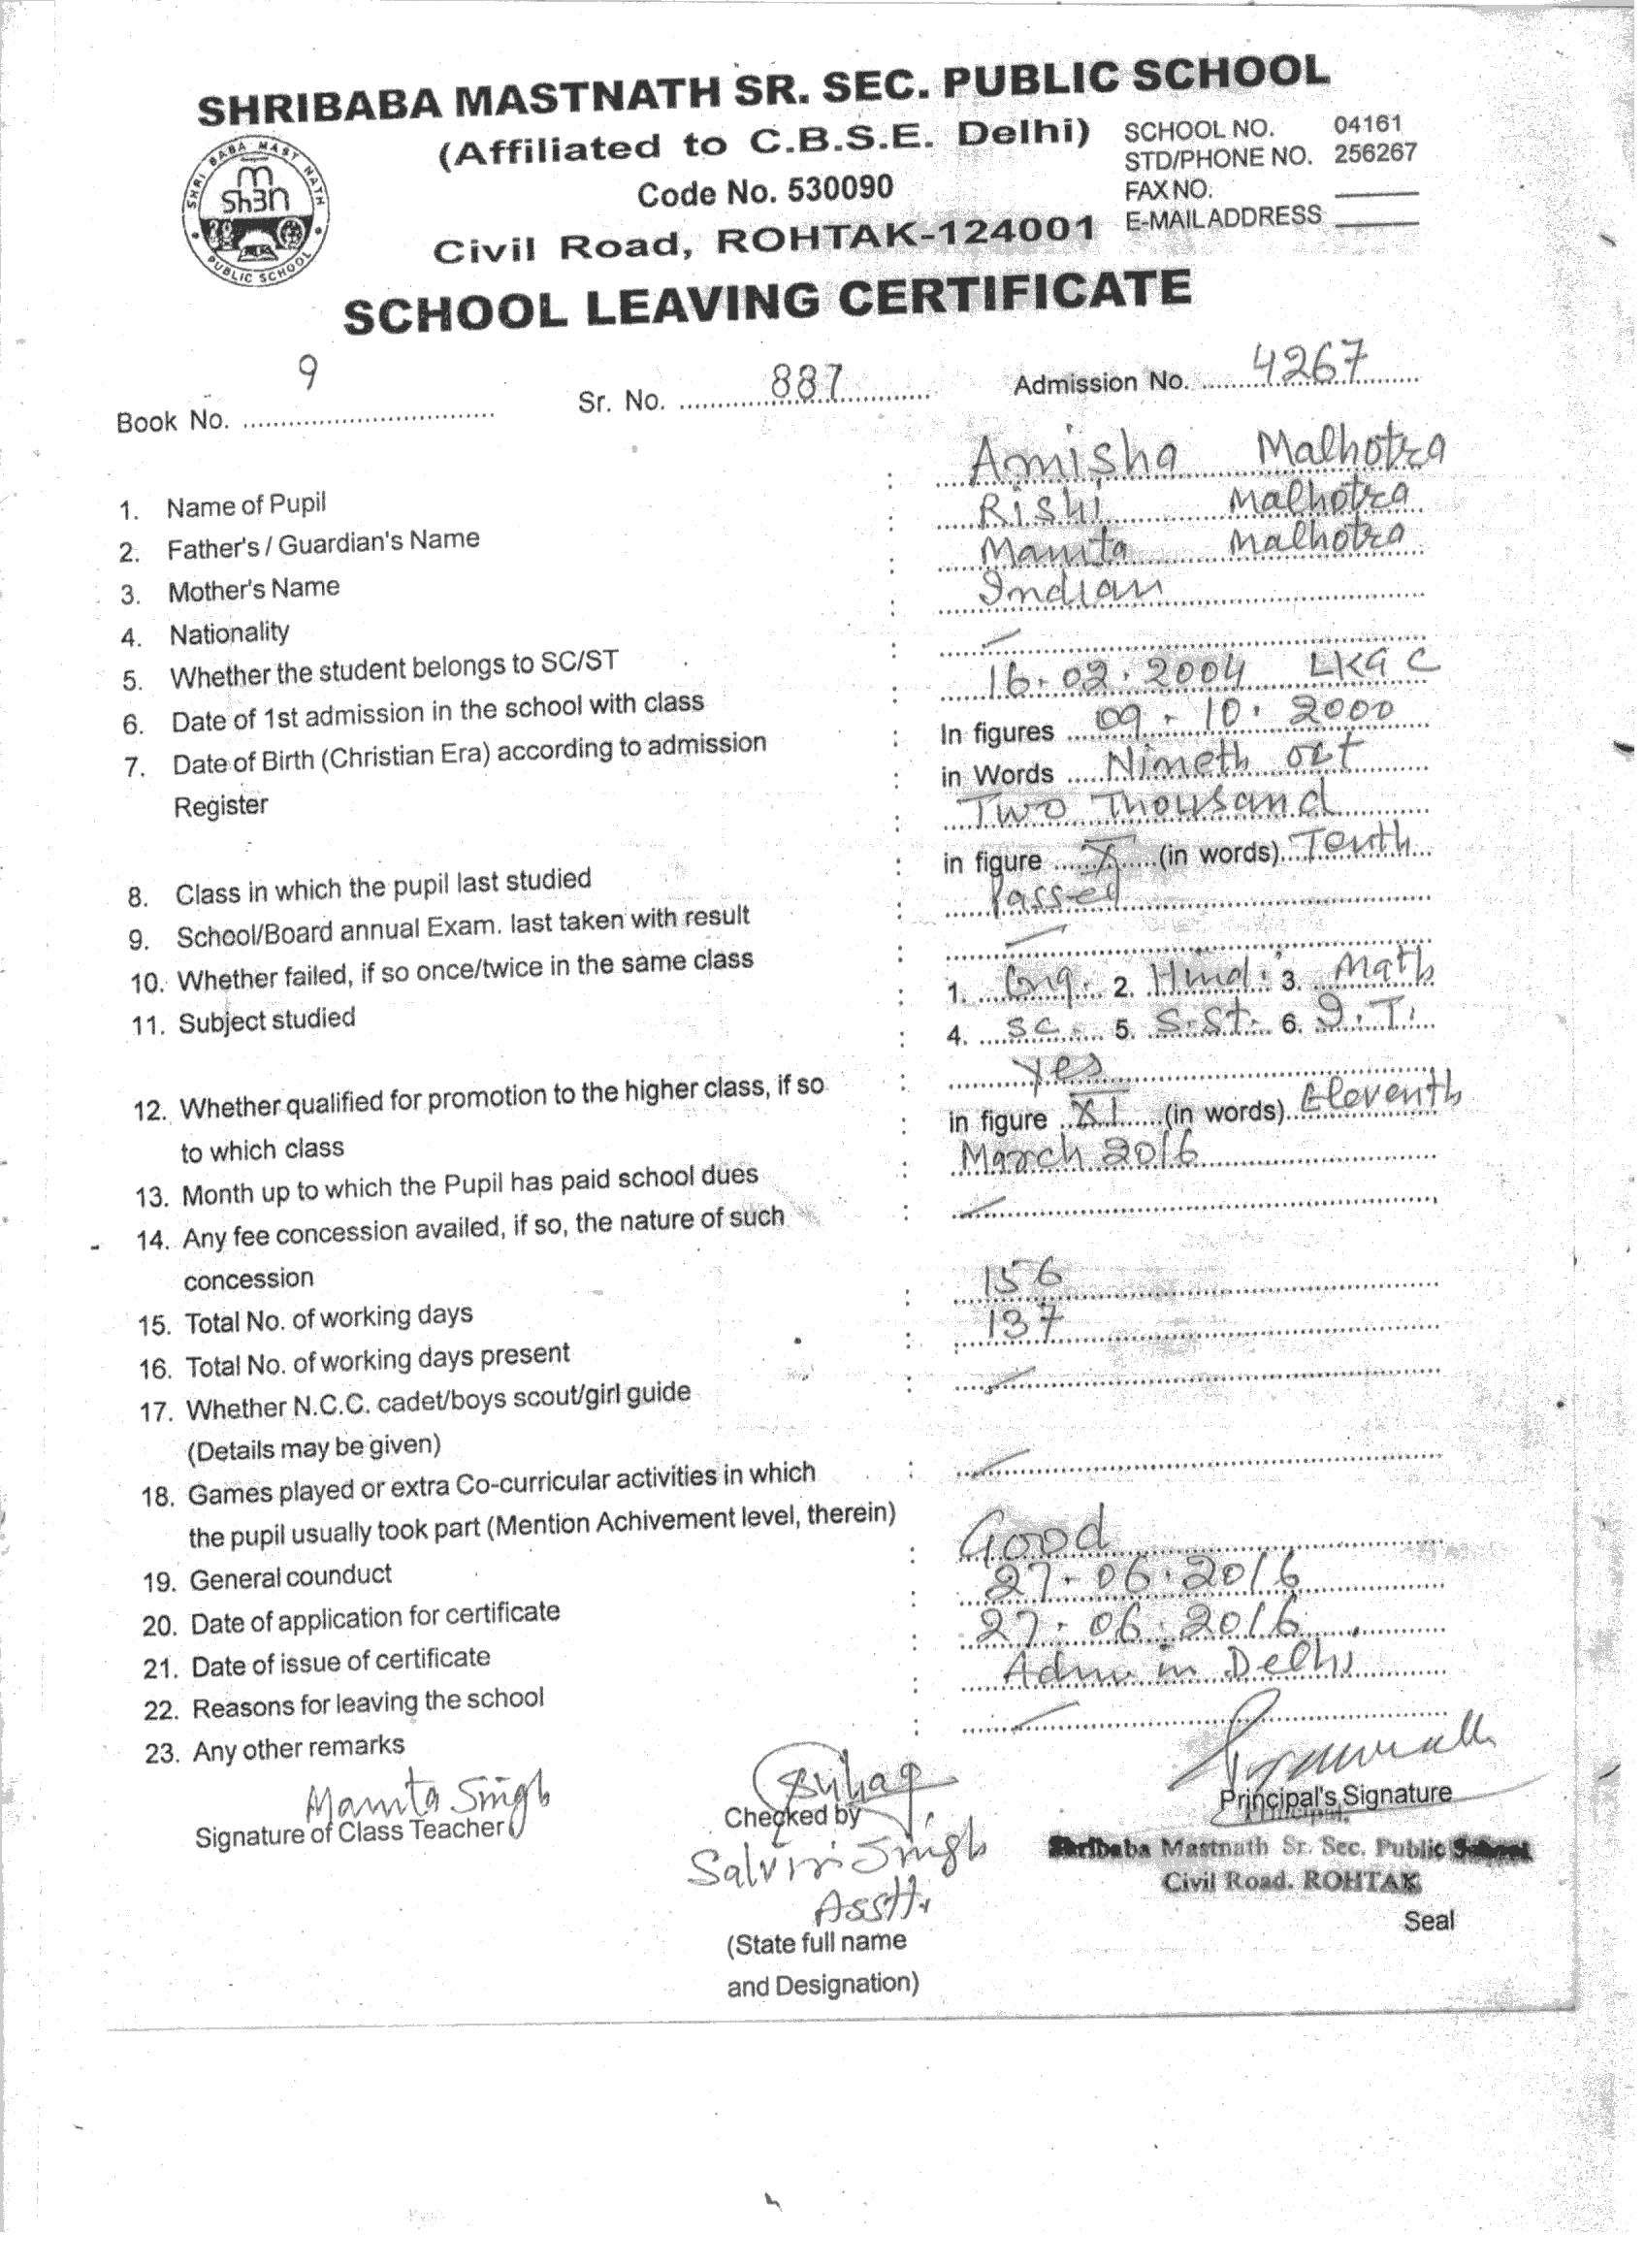 SHRIBABA MASTNATH SR. SEC. PUBLIC SCHOOL
(Affiliated to C.B.S.E. Delhi)
SCHOOL NO. 04161
STD/PHONE NO. 256267
Code No. 530090
FAX NO.
Civil Road, ROHTAK-124001
E-MAIL ADDRESS
SHRI BABA MAST NATH
Sh3n
PUBLIC SCHOOL
SCHOOL LEAVING CERTIFICATE
Book No. 9 Sr. No. 887 Admission No. 4267
1. Name of Pupil : Amisha Malhotra
2. Father's / Guardian's Name : Rishi Malhotra
3. Mother's Name : Mamta Malhotra
4. Nationality : Indian
5. Whether the student belongs to SC/ST : —
6. Date of 1st admission in the school with class : 16.02.2004 LKG C
7. Date of Birth (Christian Era) according to admission : In figures 09.10.2000
Register : in Words Nineth oct
: Two Thousand
8. Class in which the pupil last studied : in figure X (in words) Tenth
9. School/Board annual Exam. last taken with result : Passed
10. Whether failed, if so once/twice in the same class : —
11. Subject studied : 1. Eng. 2. Hindi 3. Math
: 4. SC. 5. S.St. 6. I.T.
12. Whether qualified for promotion to the higher class, if so : Yes
to which class : in figure XI (in words) Eleventh
13. Month up to which the Pupil has paid school dues : March 2016
14. Any fee concession availed, if so, the nature of such : —
concession
15. Total No. of working days : 156
16. Total No. of working days present : 137
17. Whether N.C.C. cadet/boys scout/girl guide : —
(Details may be given)
18. Games played or extra Co-curricular activities in which : —
the pupil usually took part (Mention Achivement level, therein)
19. General counduct : Good
20. Date of application for certificate : 27.06.2016
21. Date of issue of certificate : 27.06.2016
22. Reasons for leaving the school : Adm. in Delhi
23. Any other remarks : —
Mamta Singh
Signature of Class Teacher
Checked by
Principal's Signature
Principal,
Singh
Asstt.
Shribaba Mastnath Sr. Sec. Public School
Civil Road, ROHTAK
Seal
(State full name
and Designation)